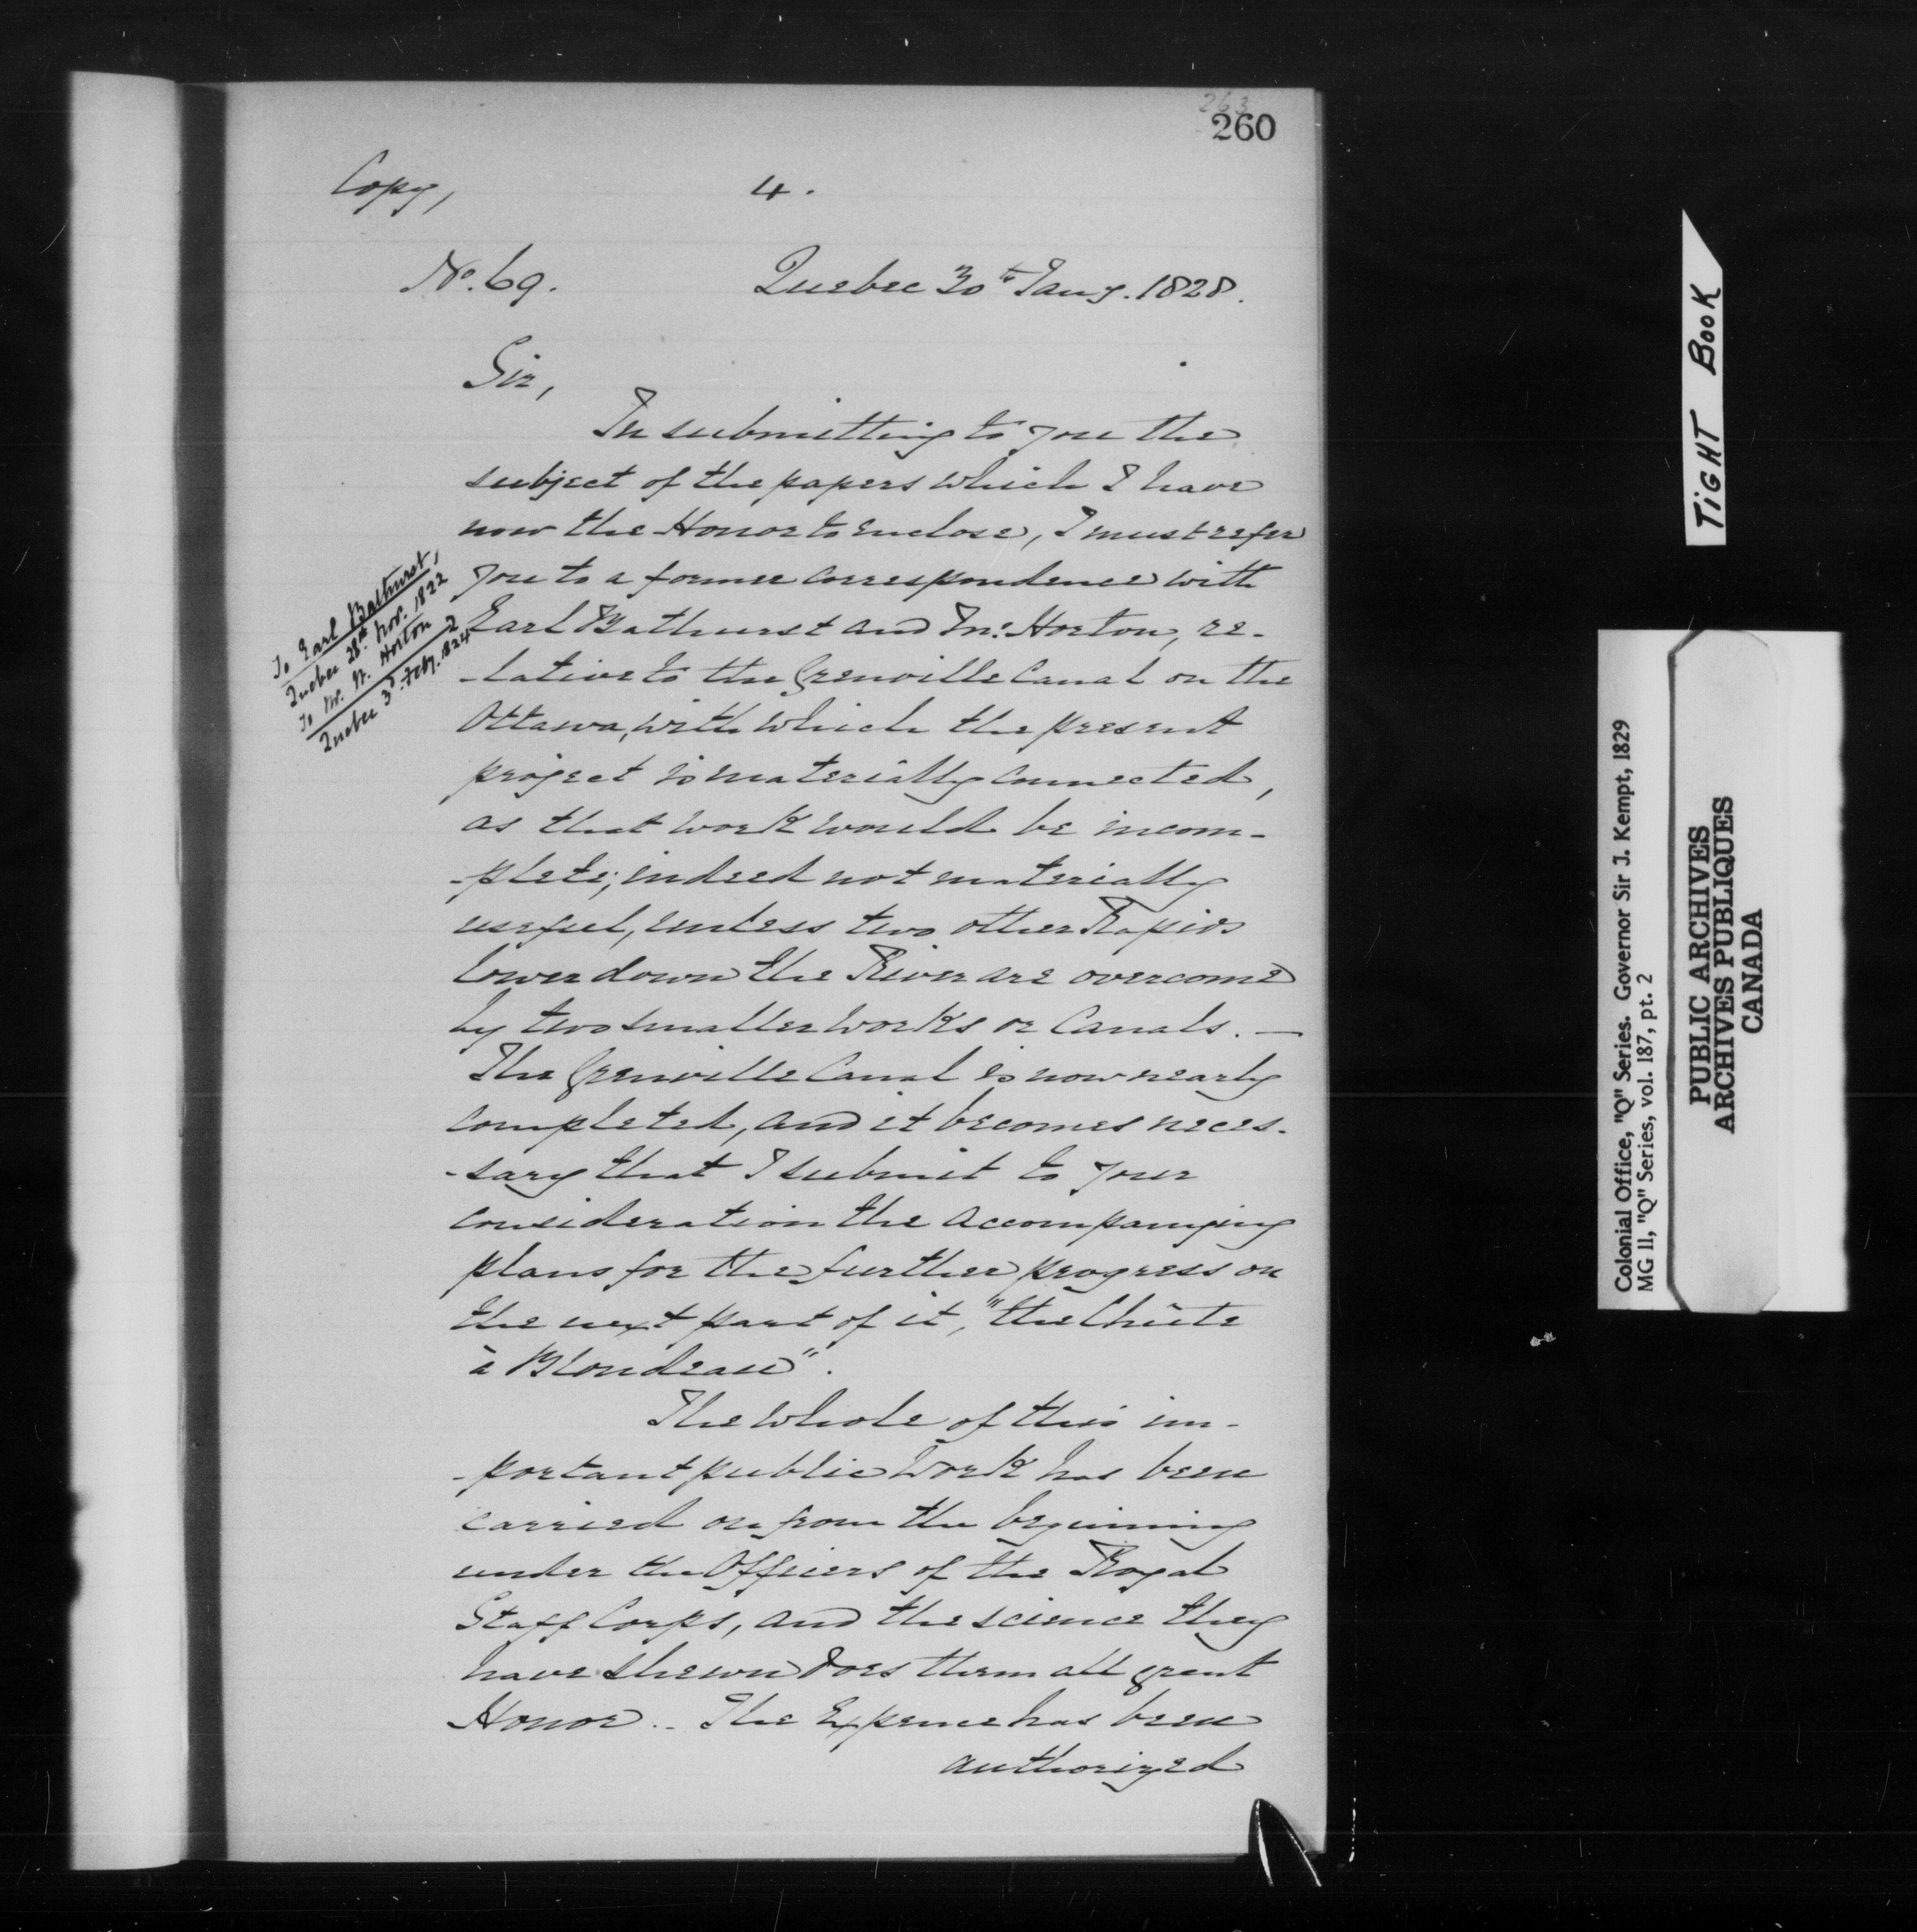 263
260
Copy,
4.
No. 69.
Quebec 30th Jany. 1828.
Sir,
In submitting to you the
subject of the papers which I have
now the Honor to enclose, I must refer
you to a former correspondence with
Earl Bathurst and Mr. Horton, re-
-lative to the Grenville Canal on the
Ottawa, with which the present
project is materially connected,
as that work would be incom-
-plete; indeed not materially
useful, unless two other Rapids
lower down the River are overcome
by two smaller works or Canals. —
The Grenville Canal is now nearly
completed, and it becomes neces-
-sary that I submit to your
consideration the accompanying
plans for the further progress on
the next part of it, "the Chûte
à Blondeau".
The whole of this im-
-portant public work has been
carried on from the beginning
under the Officers of the Royal
Staff Corps, and the science they
have shewn does them all great
Honor. - The Expence has been
authorized
To Earl Bathurst,
Quebec 28th Nov. 1822
To W. Horton
Quebec 3d. Feby. 1824
TIGHT BOOK
Colonial Office, "Q" Series. Governor Sir J. Kempt, 1829
MG 11, "Q" Series, vol. 187, pt. 2
PUBLIC ARCHIVES
ARCHIVES PUBLIQUES
CANADA